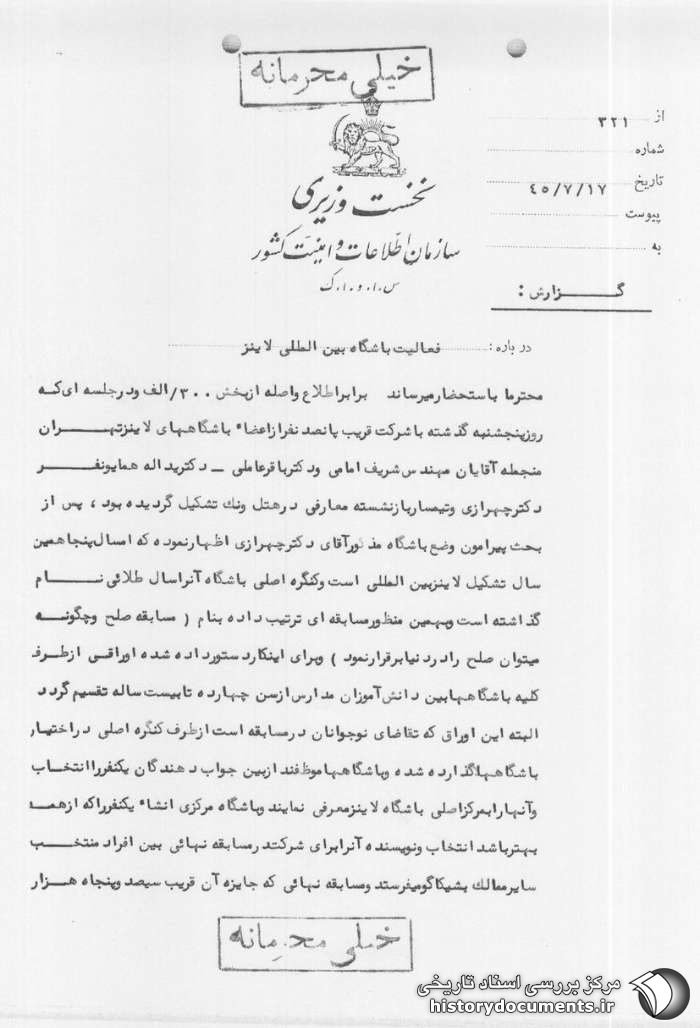 خیلی محرمانه
از ۳۲۱
شماره
تاریخ ۴۵/۷/۱۷
پیوست
به
نخست وزیری
سازمان اطلاعات و امنیت کشور
س.ا.و.ا.ک
گزارش :
درباره : فعالیت باشگاه بین المللی لاینز
محترما باستحضار میرساند برابر اطلاع واصله از بخش ۳۰۰/الف و در جلسه ای که
روز پنجشنبه گذشته با شرکت قریب پانصد نفر از اعضاء باشگاههای لاینز تهران
منجمله آقایان مهندس شریف امامی و دکتر باقر عاملی ــ دکتر یداله همایونفر
دکتر چهرازی و تیمسار بازنشسته معارفی در هتل ونك تشکیل گردیده بود ، پس از
بحث پیرامون وضع باشگاه مذکور آقای دکتر چهرازی اظهار نموده که امسال پنجاهمین
سال تشکیل لاینز بین المللی است و کنگره اصلی باشگاه آنرا سال طلائی نام
گذاشته است و بهمین منظور مسابقه ای ترتیب داده بنام ( مسابقه صلح و چگونه
میتوان صلح را در دنیا برقرار نمود ) و برای اینکار دستور داده شده اوراقی از طرف
کلیه باشگاهها بین دانش آموزان مدارس از سن چهارده تا بیست ساله تقسیم گردد
البته این اوراق که تقاضای نوجوانان در مسابقه است از طرف کنگره اصلی در اختیار
باشگاهها گذارده شده و باشگاهها موظفند از بین جواب دهندگان یکنفر را انتخاب
و آنها را بمرکز اصلی باشگاه لاینز معرفی نمایند و باشگاه مرکزی انشاء یکنفر را که از همه
بهتر باشد انتخاب و نویسنده آنرا برای شرکت در مسابقه نهائی بین افراد منتخب
سایر ممالك بشیکاگو میفرستد و مسابقه نهائی که جایزه آن قریب سیصد و پنجاه هزار
خیلی محرمانه
مرکز بررسی اسناد تاریخی
historydocuments.ir